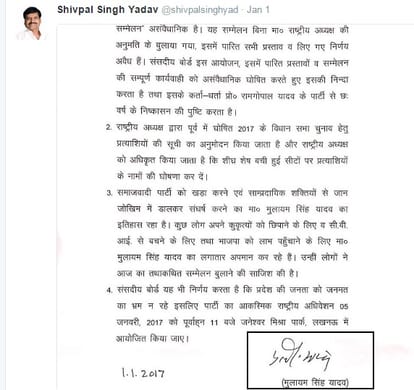 Shivpal Singh Yadav @shivpalsinghyad · Jan 1
सम्मेलन" असंवैधानिक है। यह सम्मेलन बिना मा० राष्ट्रीय अध्यक्ष की
अनुमति के बुलाया गया, इसमें पारित सभी प्रस्ताव व लिए गए निर्णय
अवैध हैं। संसदीय बोर्ड इस आयोजन, इसमें पारित प्रस्तावों व सम्मेलन
की सम्पूर्ण कार्यवाही को असंवैधानिक घोषित करते हुए इसकी निन्दा
करता है तथा इसके कर्ता–धर्ता प्रो० रामगोपाल यादव के पार्टी से छः
वर्ष के निष्कासन की पुष्टि करता है।
2. राष्ट्रीय अध्यक्ष द्वारा पूर्व में घोषित 2017 के विधान सभा चुनाव हेतु
प्रत्याशियों की सूची का अनुमोदन किया जाता है और राष्ट्रीय अध्यक्ष
को अधिकृत किया जाता है कि शीघ्र शेष बची हुई सीटों पर प्रत्याशियों
के नामों की घोषणा कर दें।
3. समाजवादी पार्टी को खड़ा करने एवं साम्प्रदायिक शक्तियों से जान
जोखिम में डालकर संघर्ष करने का मा० मुलायम सिंह यादव का
इतिहास रहा है। कुछ लोग अपने कुकृत्यों को छिपाने के लिए व सी.बी.
आई. से बचने के लिए तथा भाजपा को लाभ पहुँचाने के लिए मा०
मुलायम सिंह यादव का लगातार अपमान कर रहे हैं। उन्हीं लोगों ने
आज का तथाकथित सम्मेलन बुलाने की साजिश की है।
4. संसदीय बोर्ड यह भी निर्णय करता है कि प्रदेश की जनता को जनमत
का भ्रम न रहे इसलिए पार्टी का आकस्मिक राष्ट्रीय अधिवेशन 05
जनवरी, 2017 को पूर्वाहन 11 बजे जनेश्वर मिश्रा पार्क, लखनऊ में
आयोजित किया जाए।
1.1.2017
(मुलायम सिंह यादव)